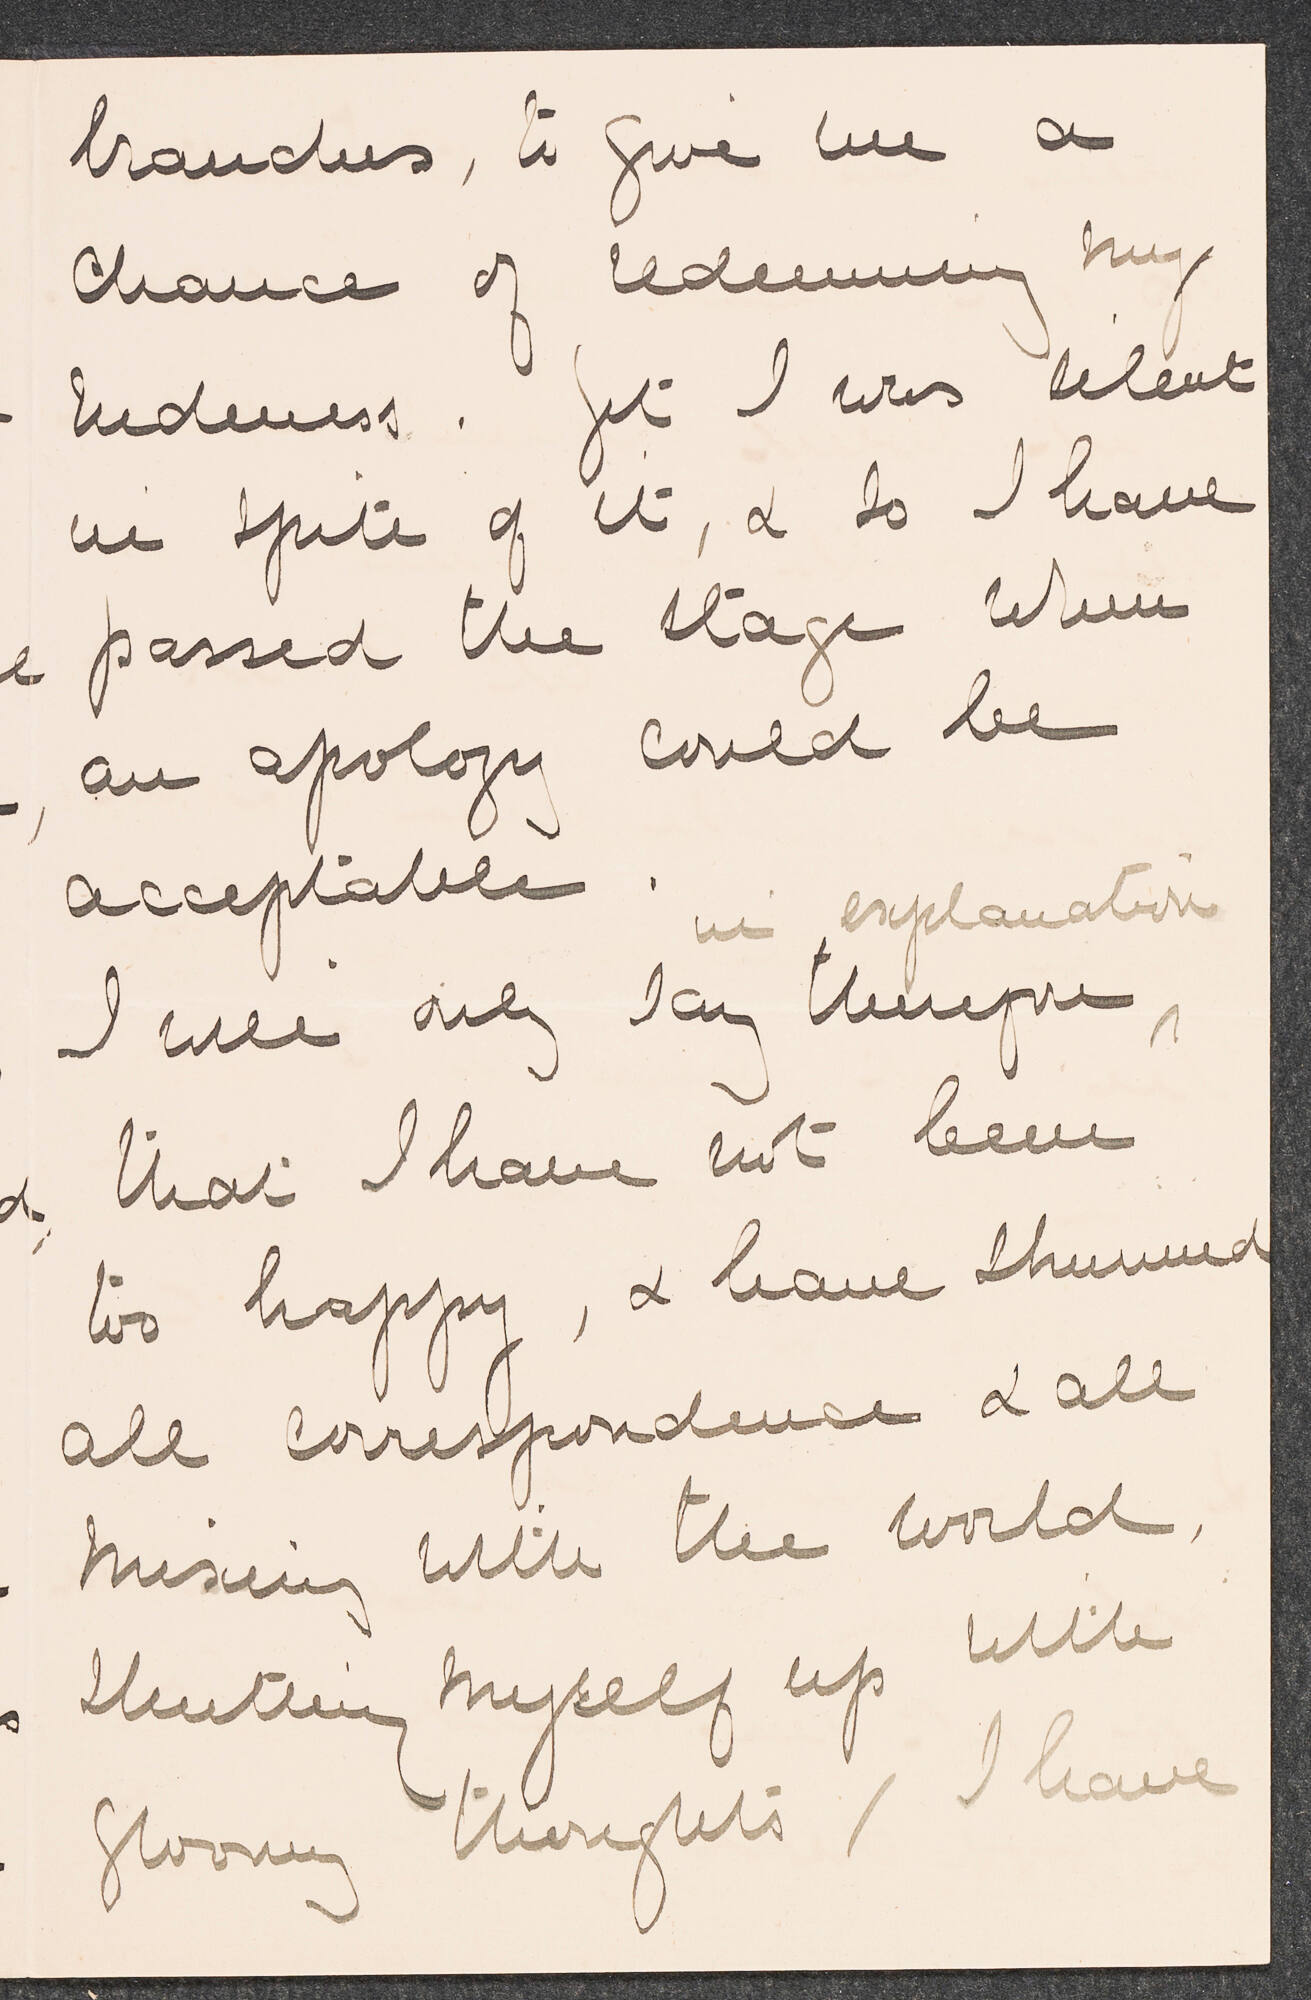 branches, to give me a
chance of redeeming my
rudeness. Yet I was silent
in spite of it, & so I have
passed the stage when
an apology could be
acceptable.
in explanation
I will only say therefore,
that I have not been
too happy, & have shunned
all correspondence & all
mixing with the world,
shutting myself up with
gloomy thoughts, I have